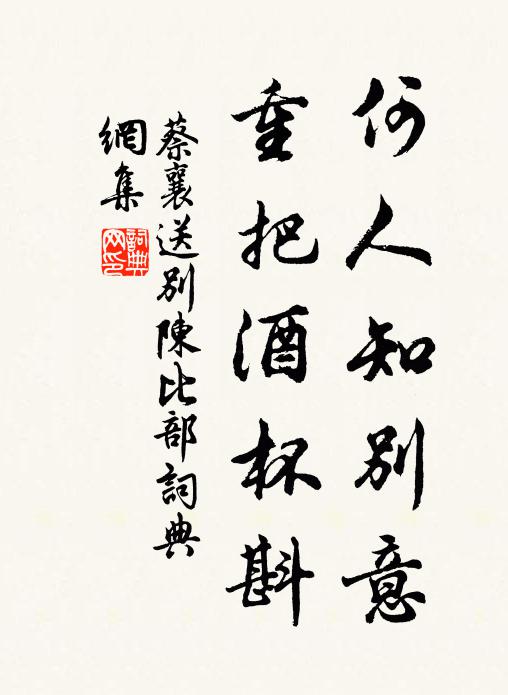 何人知別意
重把酒杯斟
蔡襄送別陳比部詞典
網集
詞典
网印